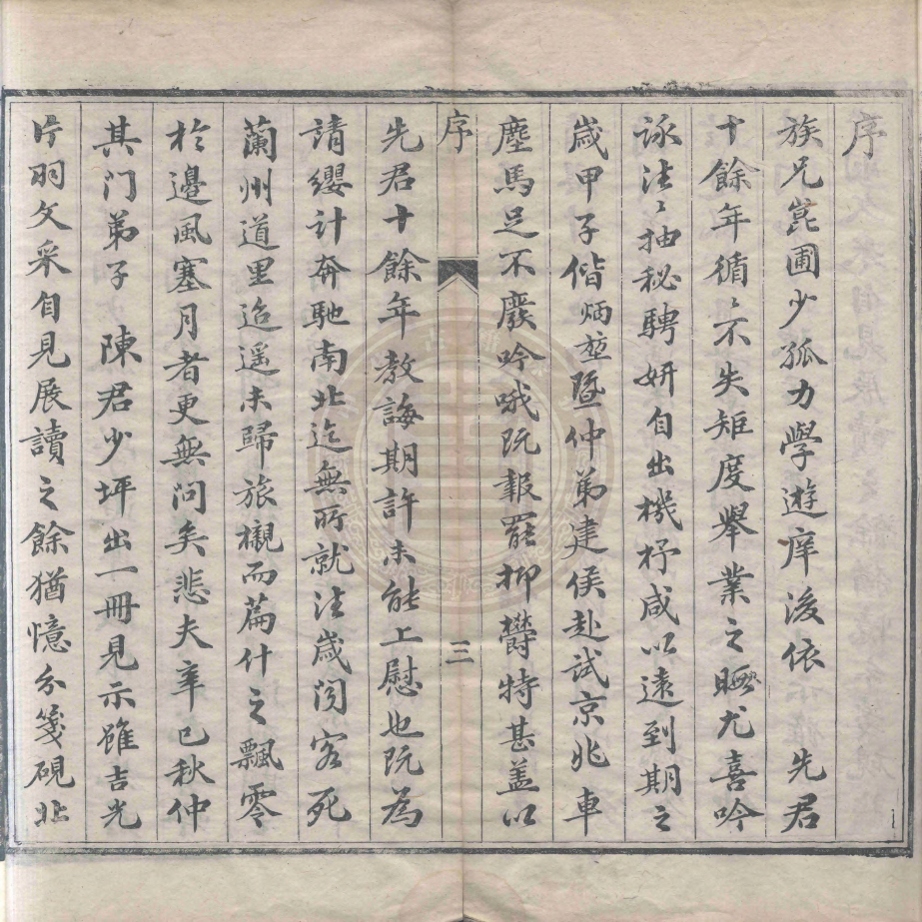 序
族兄崑圃少孤力學遊庠後依 先君
十餘年循〻不失矩度舉業之暇尤喜吟
詠法〻抽秘騁妍自出機杼咸以遠到期之
歲甲子偕炳堃暨仲弟建侯赴試京兆車
塵馬足不廢吟哦既報罷抑鬱特甚蓋以
序
三
先君十餘年教誨期許未能上慰也既為
請纓計奔馳南北迄無所就法歲閏客死
蘭州道里迢遙未歸旅櫬而篇什之飄零
於邊風塞月者更無問矣悲夫辛巳秋仲
其門弟子陳君少坪出一冊見示雖吉光
片羽文采自見展讀之餘猶憶分箋硯北